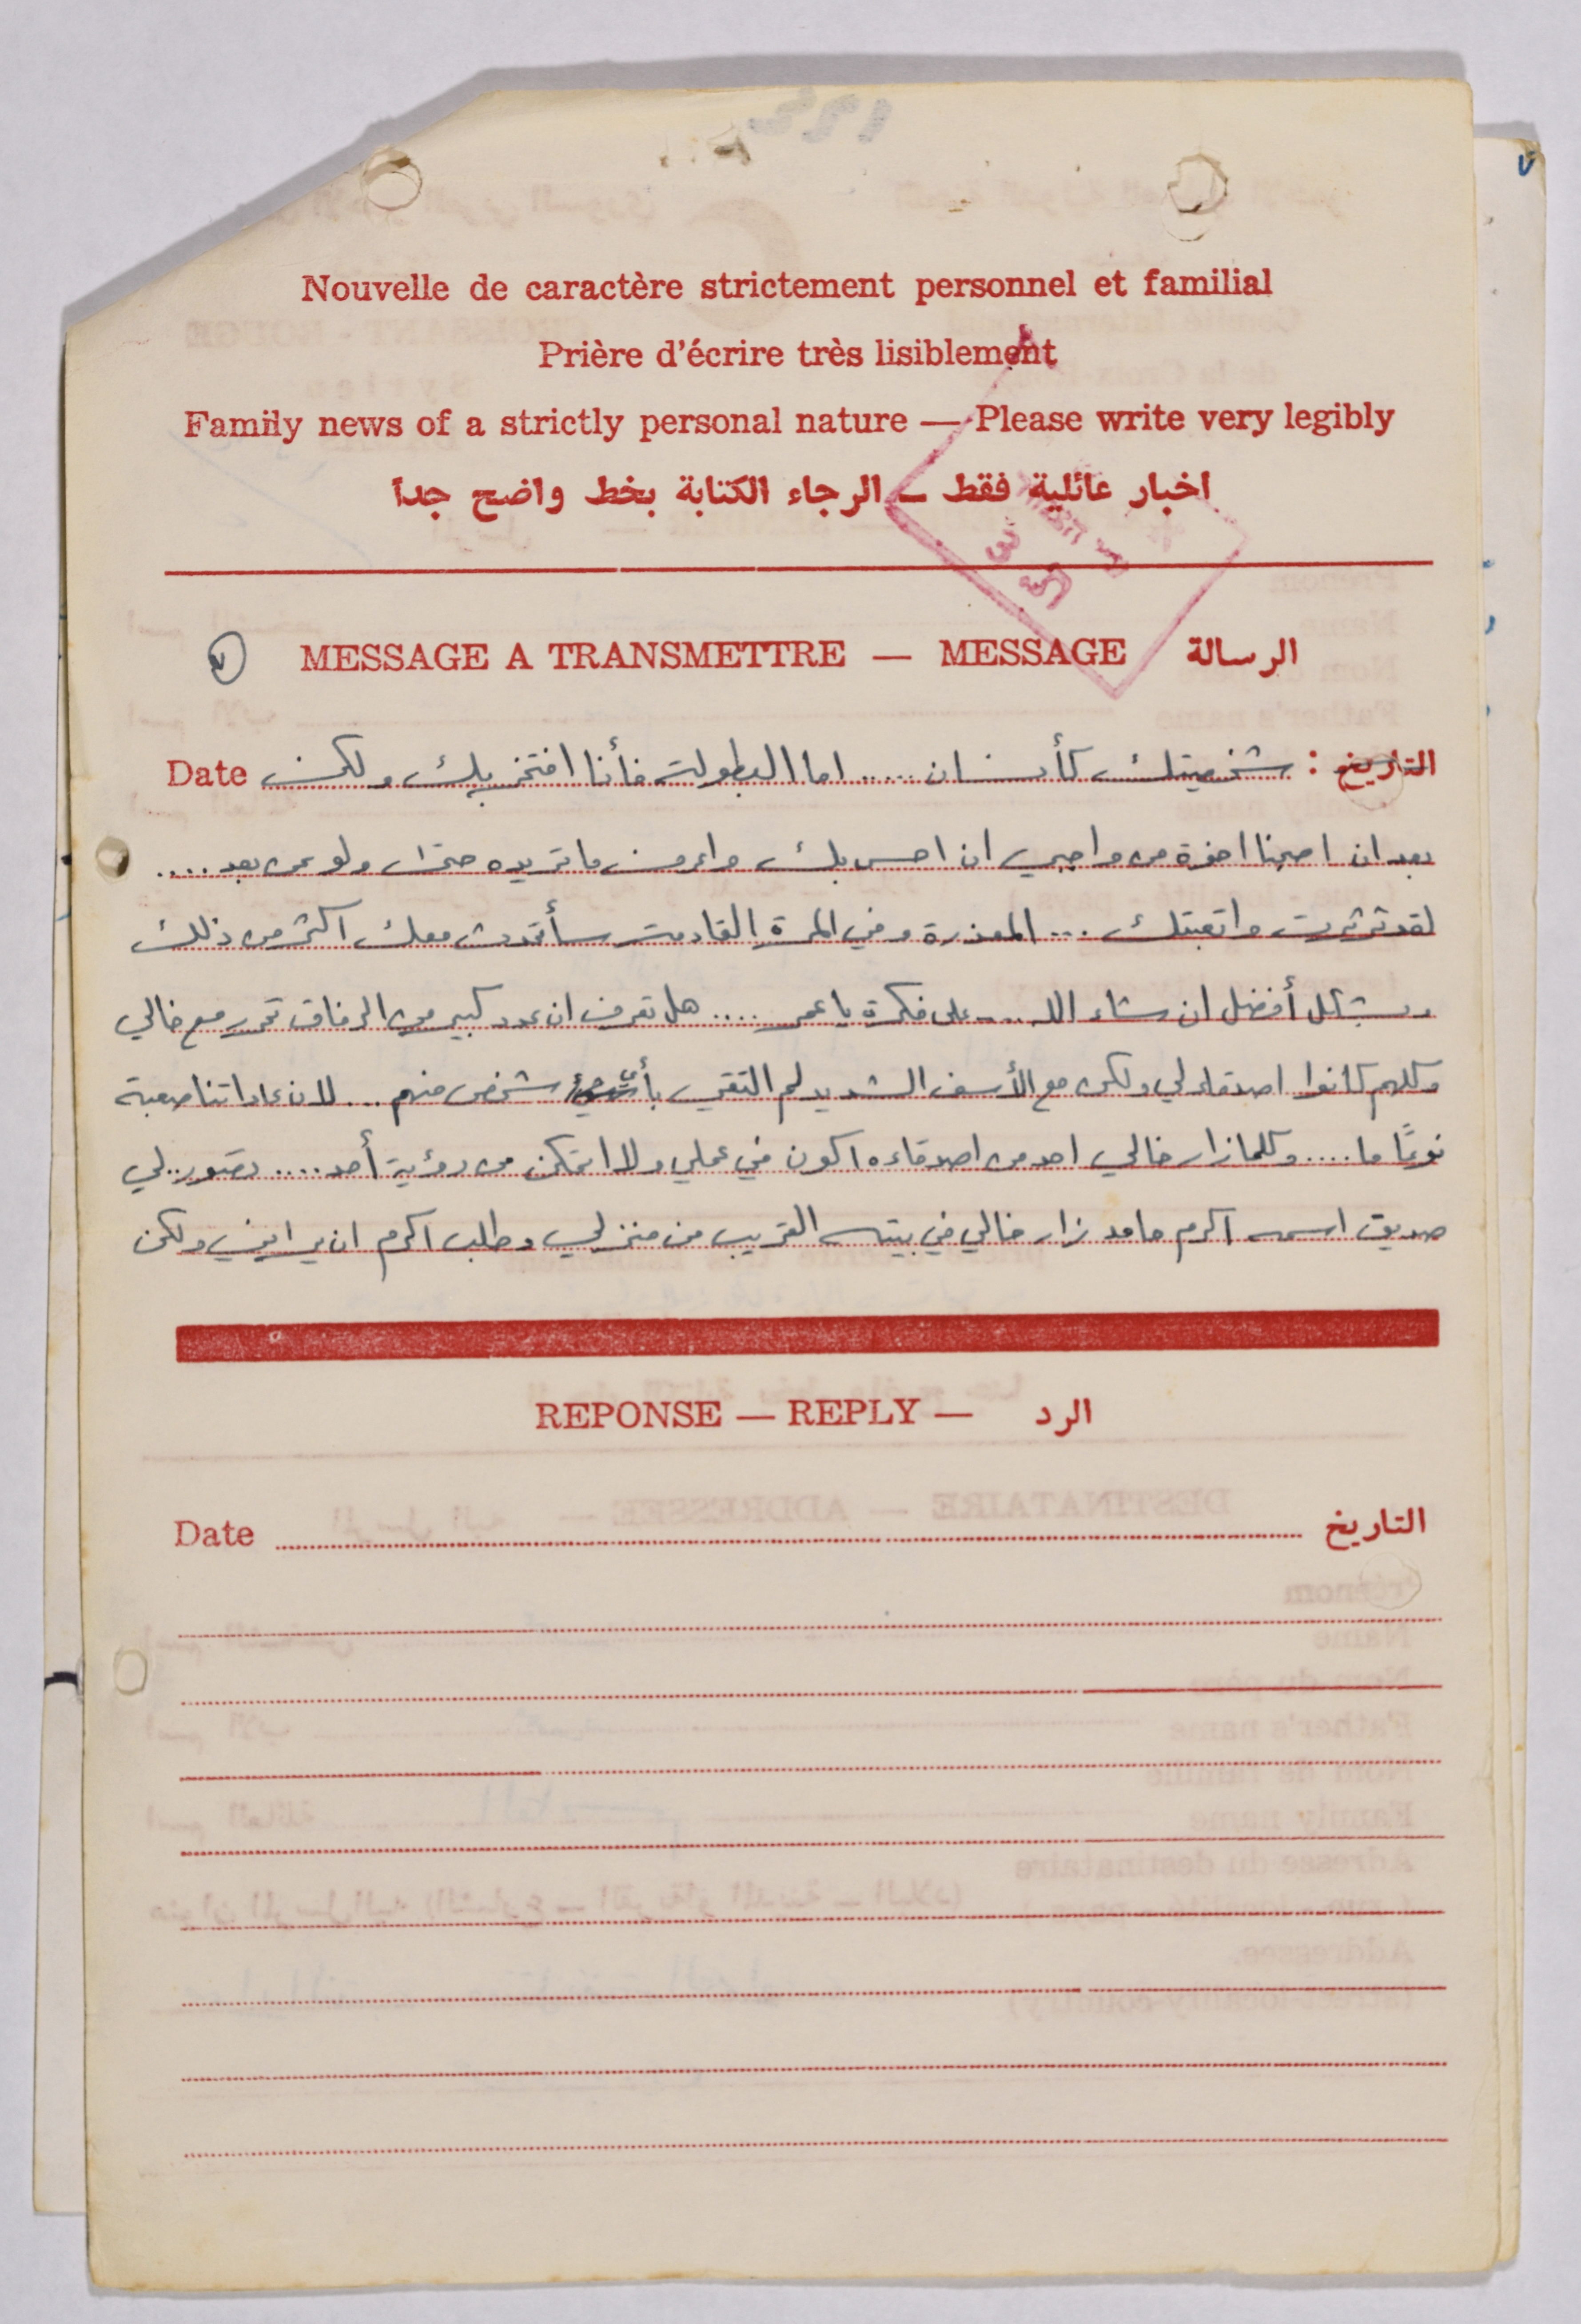 Nouvelle de caractère strictement personnel et familial
Prière d'écrire très lisiblement
Family news of a strictly personal nature — Please write very legibly
اخبار عائلية فقط ــ الرجاء الكتابة بخط واضح جداً
MESSAGE A TRANSMETTRE — MESSAGE الرسالة
٧
التاريخ : شخصيتك كأنسان ..... اما البطولة فأنا افتخر بك ولكن Date
بعد ان اصبحنا اخوة من واجبي ان احس بك واعرف ما تريده حتى ولو عن بعد ....
لقد ثرثرت واتعبتك ... المعذرة وفي المرة القادمة سأتحدث معك اكثر من ذلك
وبشكل أفضل ان شاء الله ... على فكرة يا عمر .... هل تعرف ان عدد كبير من الرفاق تحرر مع خالي
وكلهم كانوا اصدقاء لي ولكن مع الأسف الشديد لم التقي بأي شخص منهم ... لان عاداتنا صعبة
نوعًا ما .... وكلما زار خالي احد من اصدقاءه اكون في عملي ولا اتمكن من رؤية أحد .... تصور .. لي
صديق اسمه اكرم حامد زار خالي في بيته القريب من منزلي وطلب اكرم ان يراني ولكن
REPONSE — REPLY — الرد
Date التاريخ